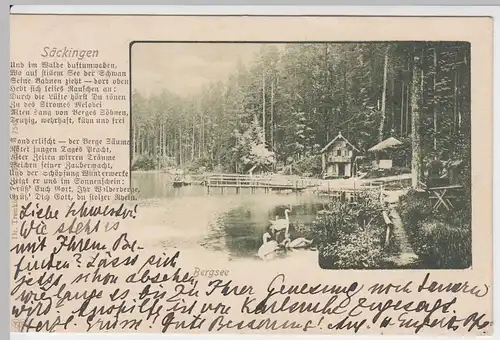 Säckingen
Und im Walde duftumwoben,
Wo auf stillem See der Schwan
Seine Bahnen zieht – dort oben
Hebt sich leises Rauschen an:
Durch die Lüfte hörst Du tönen
In des Stromes Melodei
Alten Sang von Berges Söhnen,
Trutzig, wehrhaft, kühn und frei
der Berge Säume
jungen Tages Pracht,
Alter Zeiten wirren Träume
Weichen seiner Zaubermacht,
Und der Schöpfung Wunderwerke
Zeigt er uns im Sonnenschein:
Grüß' Euch Gott, Ihr Wälderberge,
Grüß' Dich Gott, du stolzer Rhein.
Bergsee
Liebe Schwester!
Wie steht's
mit Ihrem Be-
finden? Lässt sich
jetzt schon absehen,
wie lange es bis zu Ihrer Genesung noch dauern
wird. Apotheke ist von Karlsruhe zugesagt
Herzl. Grüsse! Gute Besserung!